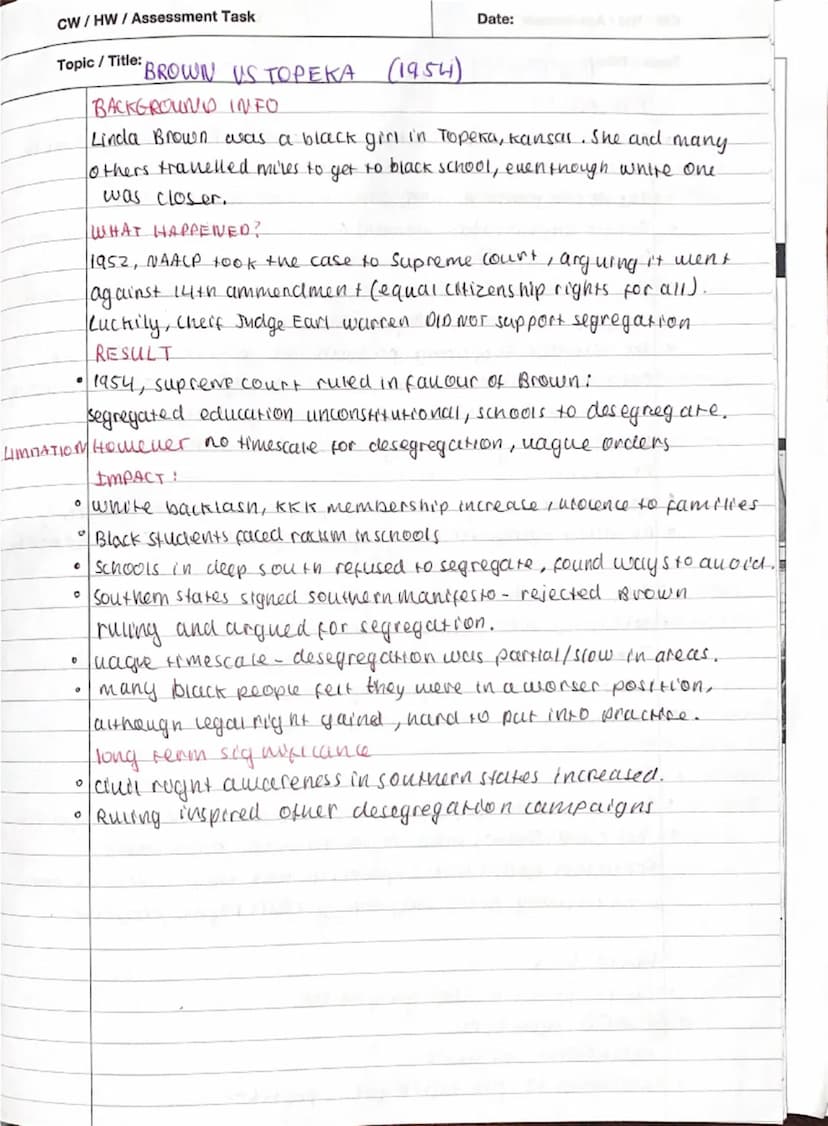 CW / HW / Assessment Task
Date:
Topic / Title: BROWN VS TOPEKA (1954)
BACKGROUND INFO
Linda Brown was a black girl in Topeka, Kansas. She and many
others travelled miles to get to black school, even though white one
was closer.
WHAT HAPPENED?
1952, NAACP took the case to Supreme Court, arguing it went
against 14th ammendment (equal citizenship rights for all).
Luckily, Cheif Judge Earl Warren DID NOT support segregation
RESULT
• 1954, supreme court ruled in favour of Brown:
segregated education unconstitutional, schools to desegregate.
LIMITATION However no timescale for desegregation, vague orders
IMPACT:
• White backlash, KKK membership increase, violence to families
• Black students faced racism in schools
• Schools in deep south refused to segregate, found ways to avoid.
• Southern states signed southern manifesto - rejected Brown
ruling and argued for segregation.
• vague timescale - desegregation was partial/slow in areas.
• many black people felt they were in a worser position,
although legal right gained, hard to put into practice.
long term significance
• civil right awareness in southern states increased.
• Ruling inspired other desegregation campaigns